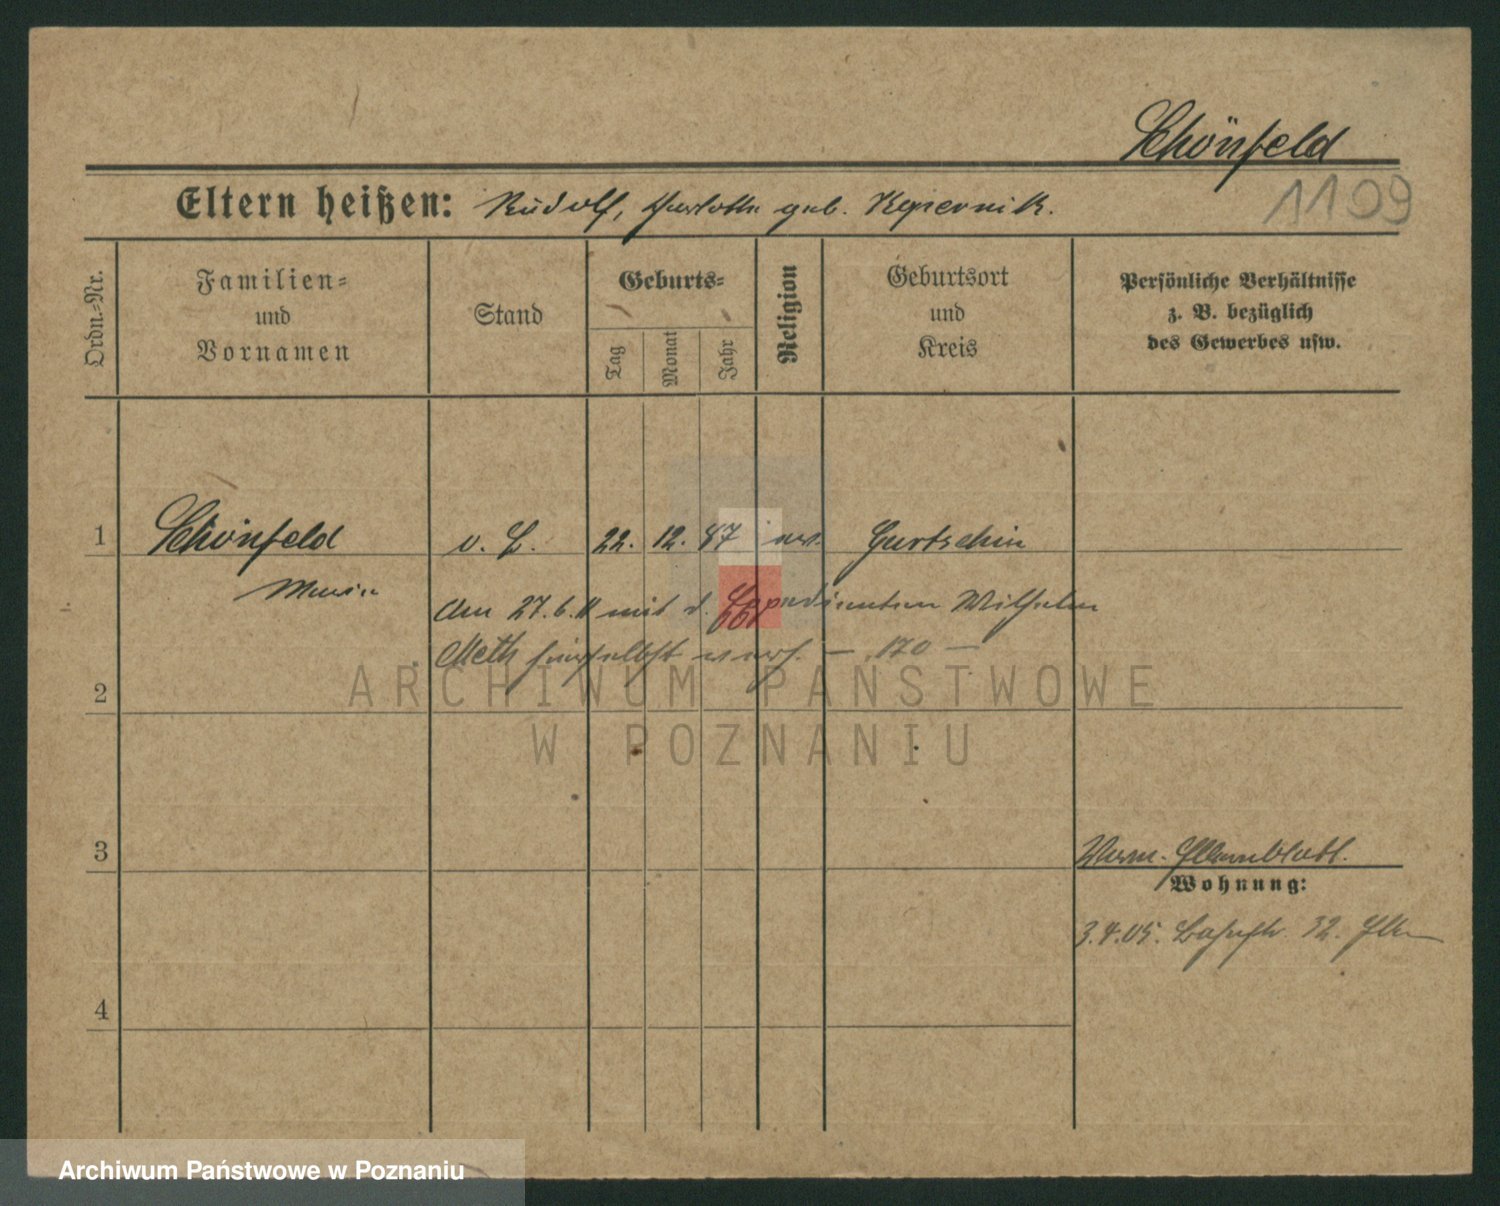 Schönfeld
1109
Eltern heißen: Rudolf, Charlotte geb. Kopernik.
Ordn.-Nr.
Familien- und Vornamen
Stand
Geburts-
Tag
Monat
Jahr
Religion
Geburtsort und Kreis
Persönliche Verhältnisse
z. B. bezüglich
des Gewerbes usw.
1 Schönfeld v. L. 22. 12. 87 ev. Gurtschin
Maria
Am 27.6.11 mit d. Expedienten Wilhelm
Meth hierselbst verh. — 170 —
2
ARCHIWUM PAŃSTWOWE
W POZNANIU
3
Wohnung:
3.4.05. Bahnstr. 32.
4
Archiwum Państwowe w Poznaniu